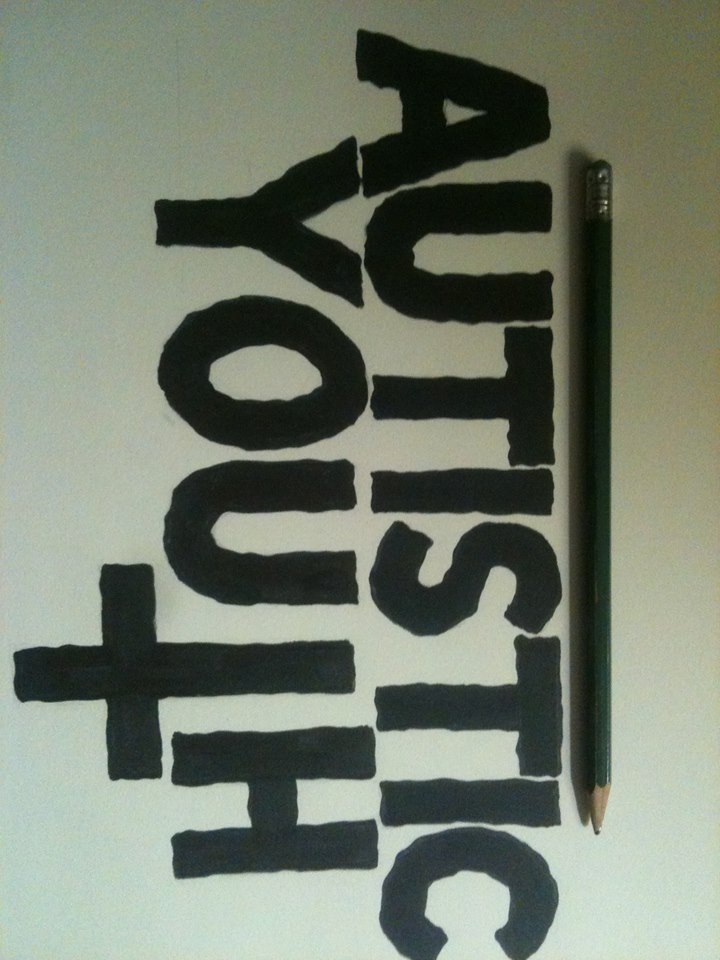 AUTISTIC
YOUTH